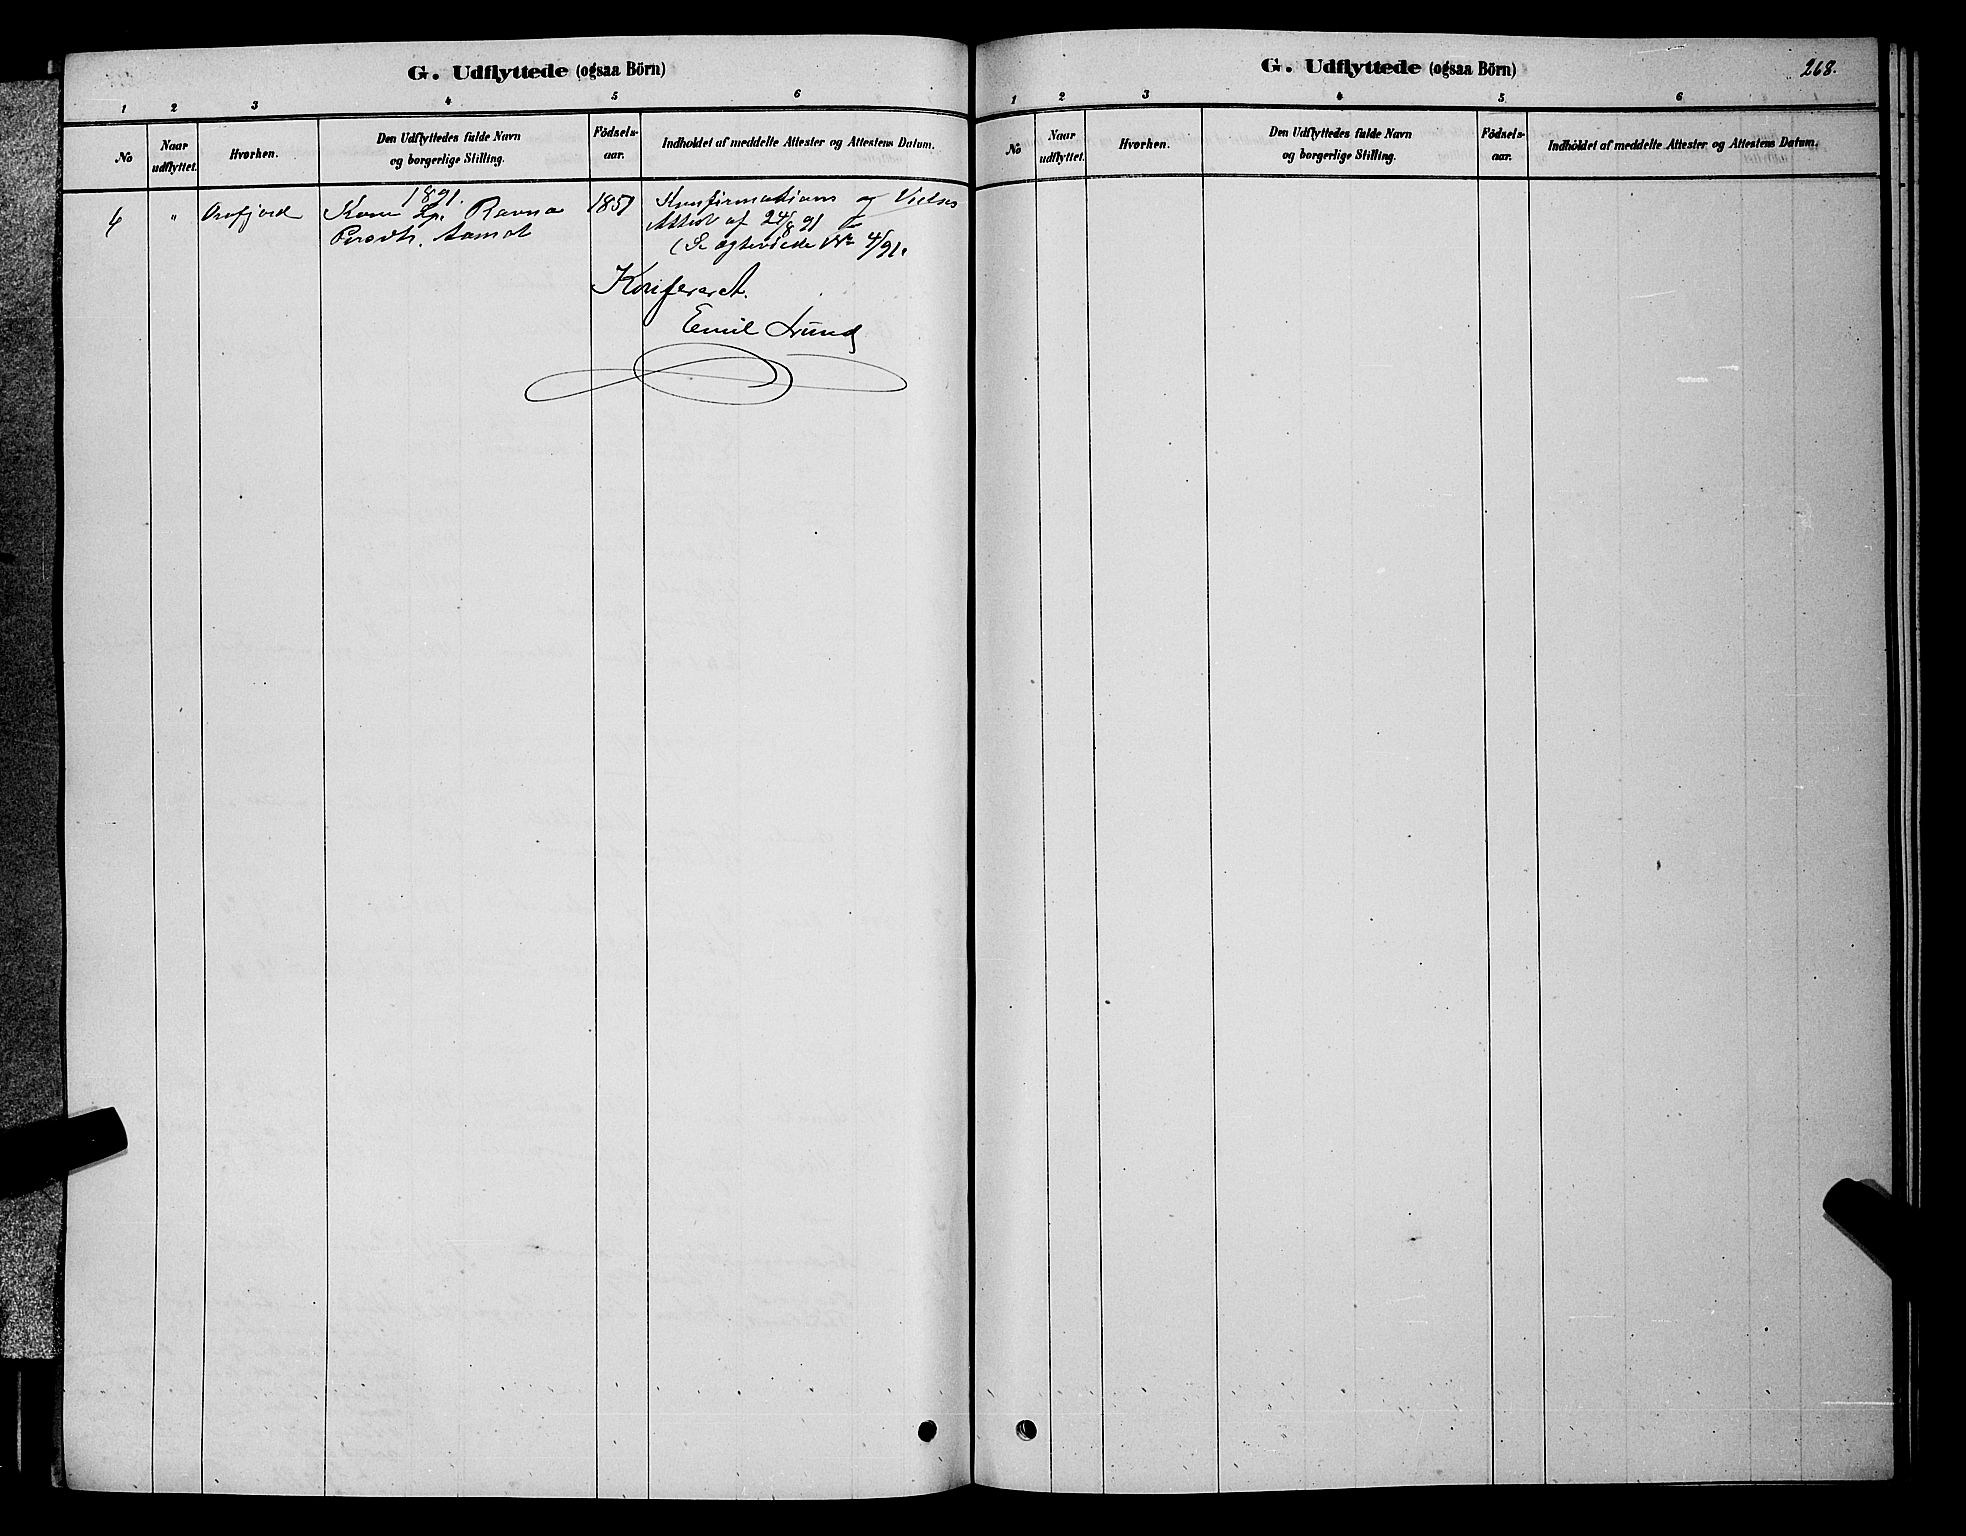 G. Udflyttede (ogsaa Börn)
1 2 3 4 5 6
No
Naar udflyttet.
Hvorhen.
Den Udflyttedes fulde Navn
og borgerlige Stilling.
Födsels-
aar.
Indholdet af meddelte Attester og Attestens Datum.
1891.
6 " Ravna 1851 Konfirmations og Vielses
Attest af 24/8 91
(Se ægteviede Nr 4/91.
Konfereret.
Emil Lund
G. Udflyttede (ogsaa Börn)
268.
1 2 3 4 5 6
No
Naar
udflyttet.
Hvorhen.
Den Udflyttedes fulde Navn
og borgerlige Stilling.
Födsels-
aar.
Indholdet af meddelte Attester og Attestens Datum.